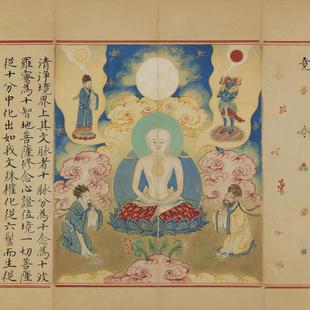 清淨境界上其文脉者十脉分為十念為十波
羅蜜為十智地菩薩修念心證位境一切菩薩
從十分中化出如我文殊權化從六髻而生從